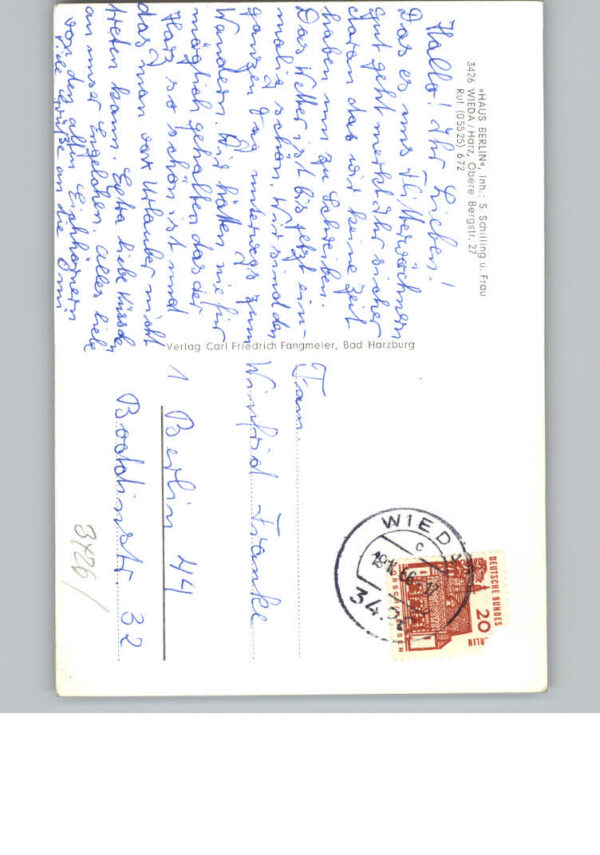 »HAUS BERLIN«, Inh.: S. Schilling u. Frau
3426 WIEDA/Harz, Obere Bergstr. 27
Ruf (05525) 672
Hallo! Ihr Lieben!
Das es uns Flitterwöchnern
gut geht merkt Ihr sicher
daran das wir keine Zeit
haben um zu schreiben.
Das Wetter ist bis jetzt ein-
malig schön. Wir sind den
ganzen Tag unterwegs zum
Wandern. Wir hätten nie für
möglich gehalten das der
Harz so schön ist und
das man vor Urlauber nicht
treten kann. Extra liebe Küsse
an unser Engelchen. alles liebe
von den alten Eichhörnern
viele Grüße an die
Verlag Carl Friedrich Fangmeier, Bad Harzburg
Fam.
Winfried Franke
1 Berlin 44
Boddinstr. 32
3426/
WIEDA
c
DEUTSCHE BUNDES
BERLIN
20